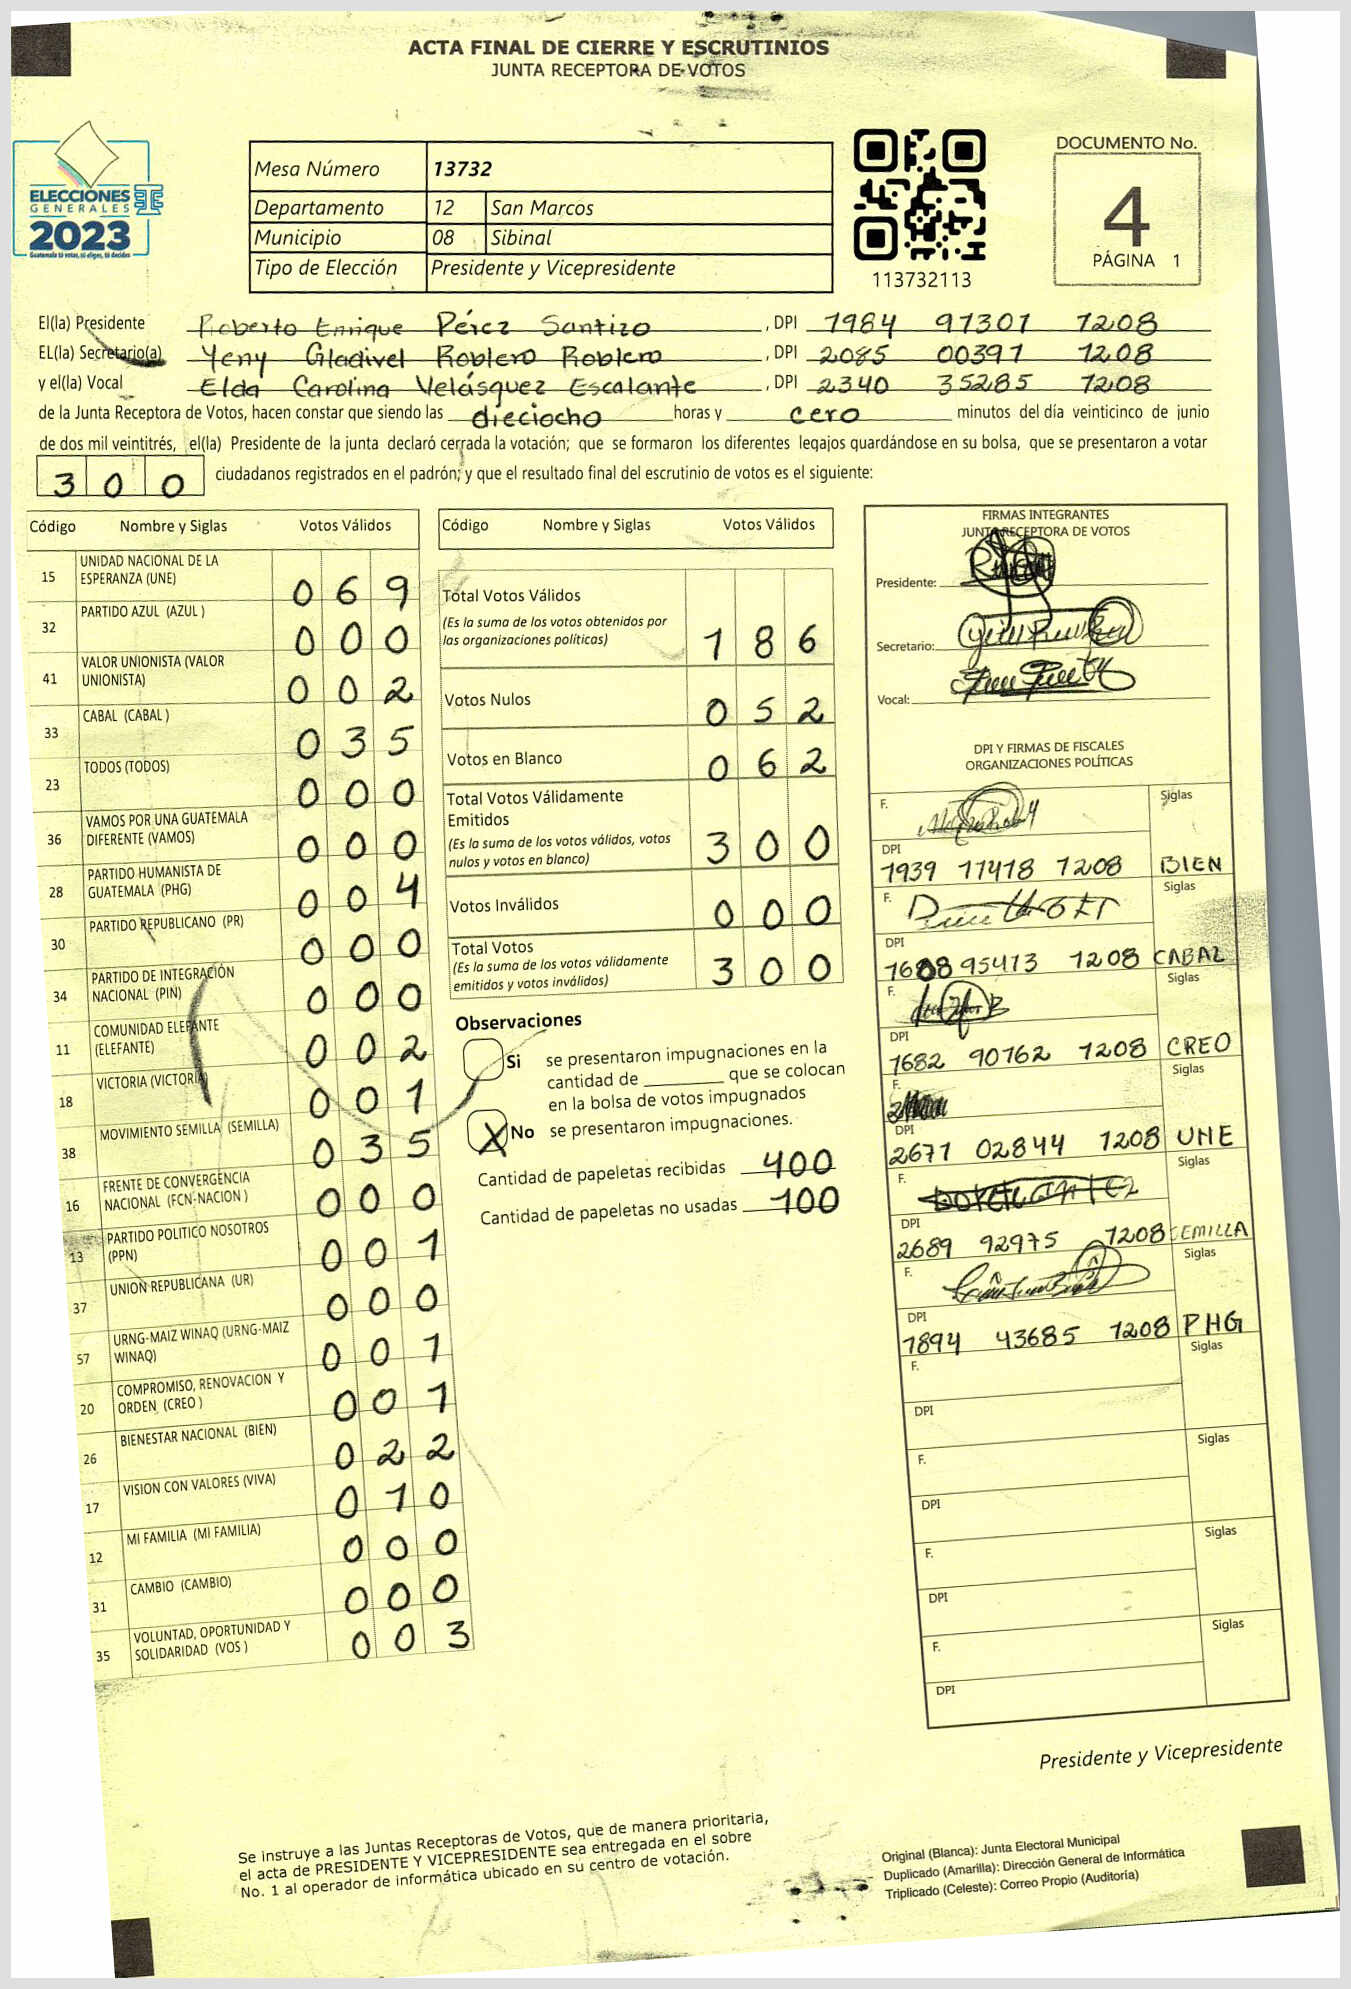 ACTA FINAL DE CIERRE Y ESCRUTINIOS
JUNTA RECEPTORA DE VOTOS
ELECCIONES
GENERALES
2023
Guatemala tú votas, tú eliges, tú decides
Mesa Número 13732
Departamento 12 San Marcos
Municipio 08 Sibinal
Tipo de Elección Presidente y Vicepresidente
113732113
DOCUMENTO No.
4
PÁGINA 1
El(la) Presidente Roberto Enrique Pérez Santizo, DPI 1984 97301 1208
EL(la) Secretario(a) Yeny Gladivel Roblero Roblero, DPI 2085 00397 1208
y el(la) Vocal Elda Carolina Velásquez Escalante, DPI 2340 35285 1208
de la Junta Receptora de Votos, hacen constar que siendo las dieciocho horas y cero minutos del día veinticinco de junio
de dos mil veintitrés, el(la) Presidente de la junta declaró cerrada la votación; que se formaron los diferentes legajos guardándose en su bolsa, que se presentaron a votar
300 ciudadanos registrados en el padrón; y que el resultado final del escrutinio de votos es el siguiente:
Código Nombre y Siglas Votos Válidos
15 UNIDAD NACIONAL DE LA ESPERANZA (UNE) 069
32 PARTIDO AZUL (AZUL ) 000
41 VALOR UNIONISTA (VALOR UNIONISTA) 002
33 CABAL (CABAL ) 035
23 TODOS (TODOS) 000
36 VAMOS POR UNA GUATEMALA DIFERENTE (VAMOS) 000
28 PARTIDO HUMANISTA DE GUATEMALA (PHG) 004
30 PARTIDO REPUBLICANO (PR) 000
34 PARTIDO DE INTEGRACIÓN NACIONAL (PIN) 000
11 COMUNIDAD ELEFANTE (ELEFANTE) 002
18 VICTORIA (VICTORIA) 001
38 MOVIMIENTO SEMILLA (SEMILLA) 035
16 FRENTE DE CONVERGENCIA NACIONAL (FCN-NACION ) 000
13 PARTIDO POLITICO NOSOTROS (PPN) 001
37 UNION REPUBLICANA (UR) 000
57 URNG-MAIZ WINAQ (URNG-MAIZ WINAQ) 001
20 COMPROMISO, RENOVACION Y ORDEN (CREO ) 001
26 BIENESTAR NACIONAL (BIEN) 022
17 VISION CON VALORES (VIVA) 010
12 MI FAMILIA (MI FAMILIA) 000
31 CAMBIO (CAMBIO) 000
35 VOLUNTAD, OPORTUNIDAD Y SOLIDARIDAD (VOS ) 003
Código Nombre y Siglas Votos Válidos
Total Votos Válidos
(Es la suma de los votos obtenidos por
las organizaciones políticas) 186
Votos Nulos 052
Votos en Blanco 062
Total Votos Válidamente
Emitidos
(Es la suma de los votos válidos, votos
nulos y votos en blanco) 300
Votos Inválidos 000
Total Votos
(Es la suma de los votos válidamente
emitidos y votos inválidos) 300
Observaciones
Si se presentaron impugnaciones en la
cantidad de que se colocan
en la bolsa de votos impugnados
X No se presentaron impugnaciones.
Cantidad de papeletas recibidas 400
Cantidad de papeletas no usadas 100
FIRMAS INTEGRANTES
JUNTA RECEPTORA DE VOTOS
Presidente:
Secretario:
Vocal:
DPI Y FIRMAS DE FISCALES
ORGANIZACIONES POLÍTICAS
F. Siglas
DPI
1939 11418 1208 BIEN
F. Siglas
DPI
1608 95413 1208 CABAL
F. Siglas
DPI
1682 90762 1208 CREO
F. Siglas
DPI
2671 02844 1208 UNE
F. Siglas
DPI
2689 92975 1208 SEMILLA
F. Siglas
DPI
1894 43685 1208 PHG
F. Siglas
DPI
F. Siglas
DPI
F. Siglas
DPI
F. Siglas
DPI
Presidente y Vicepresidente
Se instruye a las Juntas Receptoras de Votos, que de manera prioritaria,
el acta de PRESIDENTE Y VICEPRESIDENTE sea entregada en el sobre
No. 1 al operador de informática ubicado en su centro de votación.
Original (Blanca): Junta Electoral Municipal
Duplicado (Amarilla): Dirección General de Informática
Triplicado (Celeste): Correo Propio (Auditoría)